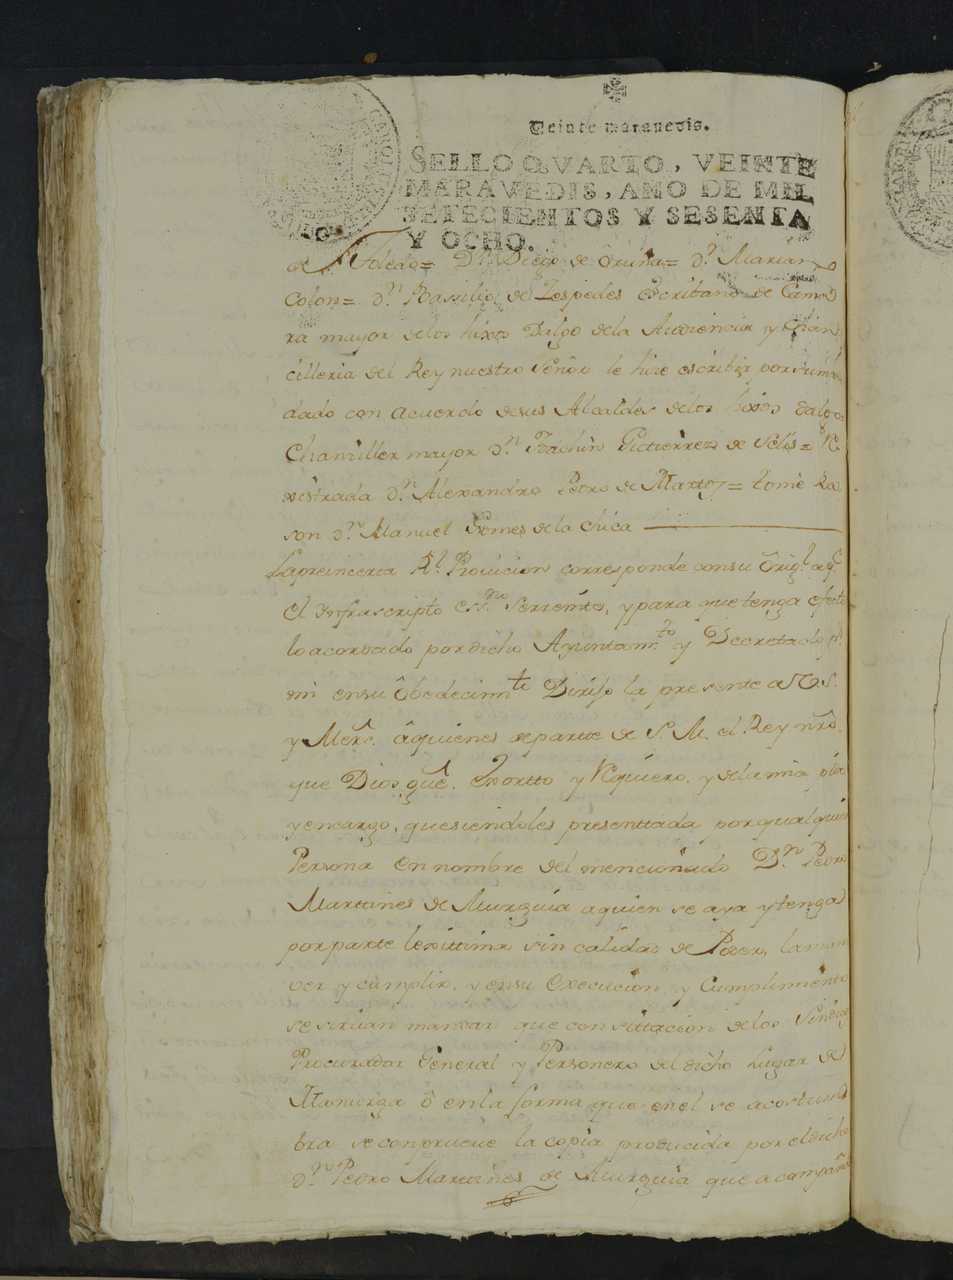 Veinte maravedis.
SELLO QVARTO, VEINTE
MARAVEDIS, AÑO DE MIL
SETECIENTOS Y SESENTA
Y OCHO.
de Toledo= Dn. Diego de Oruña= Dn. Mariano
Colon= Dn. Bassilio de Zespedes escribano de Cama
ra mayor de los hixos Dalgo de la Audiencia y Chan
cilleria del Rey nuestro Señor le hize escribir por su man
dado con acuerdo de sus Alcaldes de los hixos dalgo=
Chanziller mayor Dn. Joachin Gutierrez de Selis= Re
xistrada Dn. Alexandro Pedro de Martos= tome Ra
son Dn. Manuel Gomes de la Chica
La preincerta Rl. Provicion corresponde con su Origl. a q.e
el Infrascripto essno. Serremito, y para que tenga efecto
lo acordado por dicho Ayuntamto. y Decretado pr.
mi en su Obedecimte. Dirijo la presente a V.S.
y Mers. â quienes de parte de S. M. el Rey nro.
que Dios gue. Exortto y Requiero, y de la mia pido
y encargo, que siendoles presenttada por qualquier
Persona en nombre del mencionado Dn. Pedro
Martines de Murguia a quien se aya y tenga
por parte lexittima sin calidad de Poder, la man
den y cumplir, y en su Execucion y Cumplimiento
se sirvan mandar que con sittacion de los Sindicos
Procurador General y Personero del dicho Lugar de
Manurga ô en la forma que en el se acostum
bra se conprueve la copia producida por el dicho
Dn. Pedro Martines de Murguia que acompaña